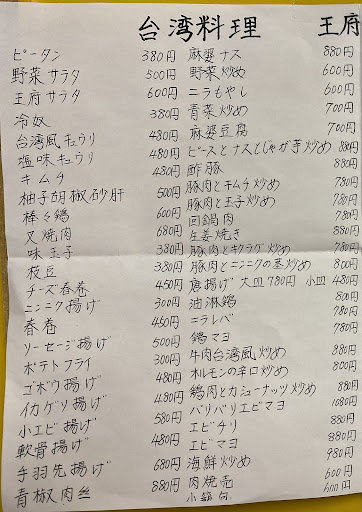 台湾料理 王府
ピータン 380円
野菜サラタ 500円
王府サラタ 600円
冷奴 380円
台湾風キュウリ 480円
塩味キュウリ 480円
キムチ 480円
柚子胡椒砂肝 500円
棒々鶏 600円
叉焼肉 680円
味玉子 380円
枝豆 380円
チーズ春巻 450円
ニンニク揚げ 300円
春巻 450円
ソーセージ揚げ 500円
ポテトフライ 300円
ゴボウ揚げ 480円
イカゲソ揚げ 480円
小エビ揚げ 580円
軟骨揚げ 480円
手羽先揚げ 680円
青椒肉絲 880円
麻婆ナス 880円
野菜炒め
ニラもやし 600円
青菜炒め 700円
麻婆豆腐 700円
ピースとナスとじゃが芋炒め 880円
酢豚 880円
豚肉とキムチ炒め 780円
豚肉と玉子炒め 780円
回鍋肉 780円
生姜焼き 880円
豚肉とキクラゲ炒め 780円
豚肉とニンニクの茎炒め 800円
唐揚げ 大皿780円 小皿 480円
油淋鶏
ニラレバ 780円
鶏マヨ 780円
牛肉台湾風炒め 880円
ホルモンの辛口炒め 800円
鶏肉とカシューナッツ炒め 880円
バリバリエビマヨ 1080円
エビチリ 880円
エビマヨ 880円
海鮮炒め 980円
肉焼売 600円
小籠包 600円